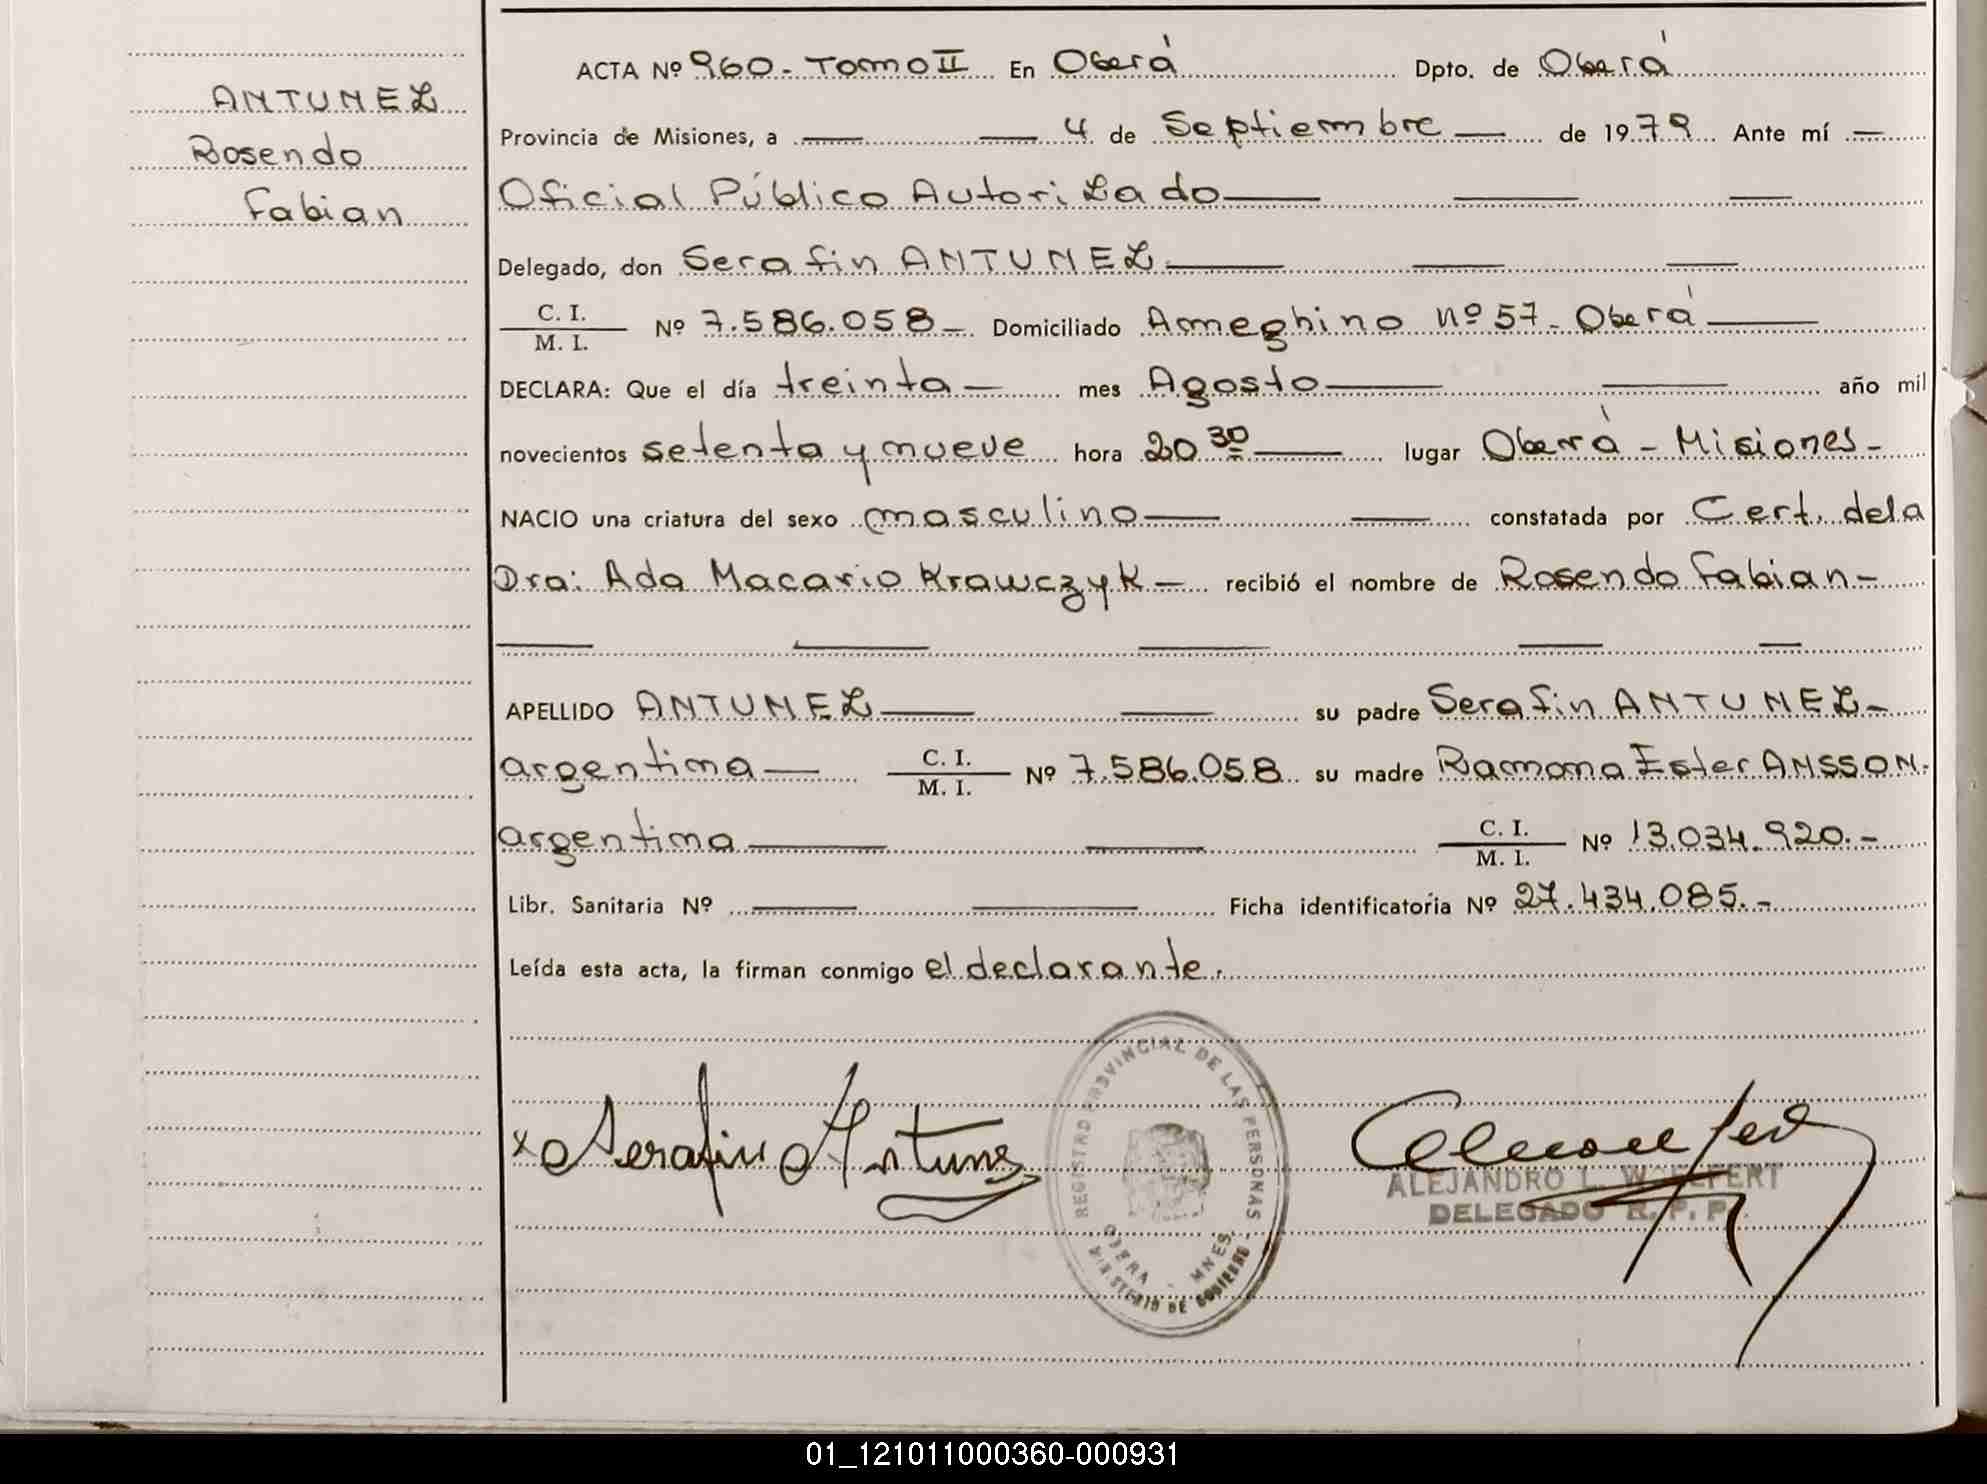 ANTUNEZ
Rosendo
Fabian
ACTA Nº 960 - Tomo II En Oberá Dpto. de Oberá
Provincia de Misiones, a 4 de Septiembre de 1979 Ante mí
Oficial Público Autorizado
Delegado, don Serafin ANTUNEZ
C. I.
M. I. Nº 7.586.058 Domiciliado Ameghino Nº 57 - Oberá
DECLARA: Que el día treinta mes Agosto año mil
novecientos setenta y nueve hora 20 30 lugar Oberá - Misiones -
NACIO una criatura del sexo masculino constatada por Cert. de la
Dra: Ada Macario Krawczyk - recibió el nombre de Rosendo Fabian -
APELLIDO ANTUNEZ su padre Serafin ANTUNEZ -
argentina C. I.
M. I. Nº 7.586.058 su madre Ramona Ester ANSSON.
argentina C. I.
M. I. Nº 13.034.920. -
Libr. Sanitaria Nº Ficha identificatoria Nº 27.434.085. -
Leída esta acta, la firman conmigo el declarante.
x Serafin Antunes
REGISTRO PROVINCIAL DE LAS PERSONAS
OBERA - MNES.
MINISTERIO DE GOBIERNO
ALEJANDRO L.
DELEGADO R. P. P.
01_121011000360-000931